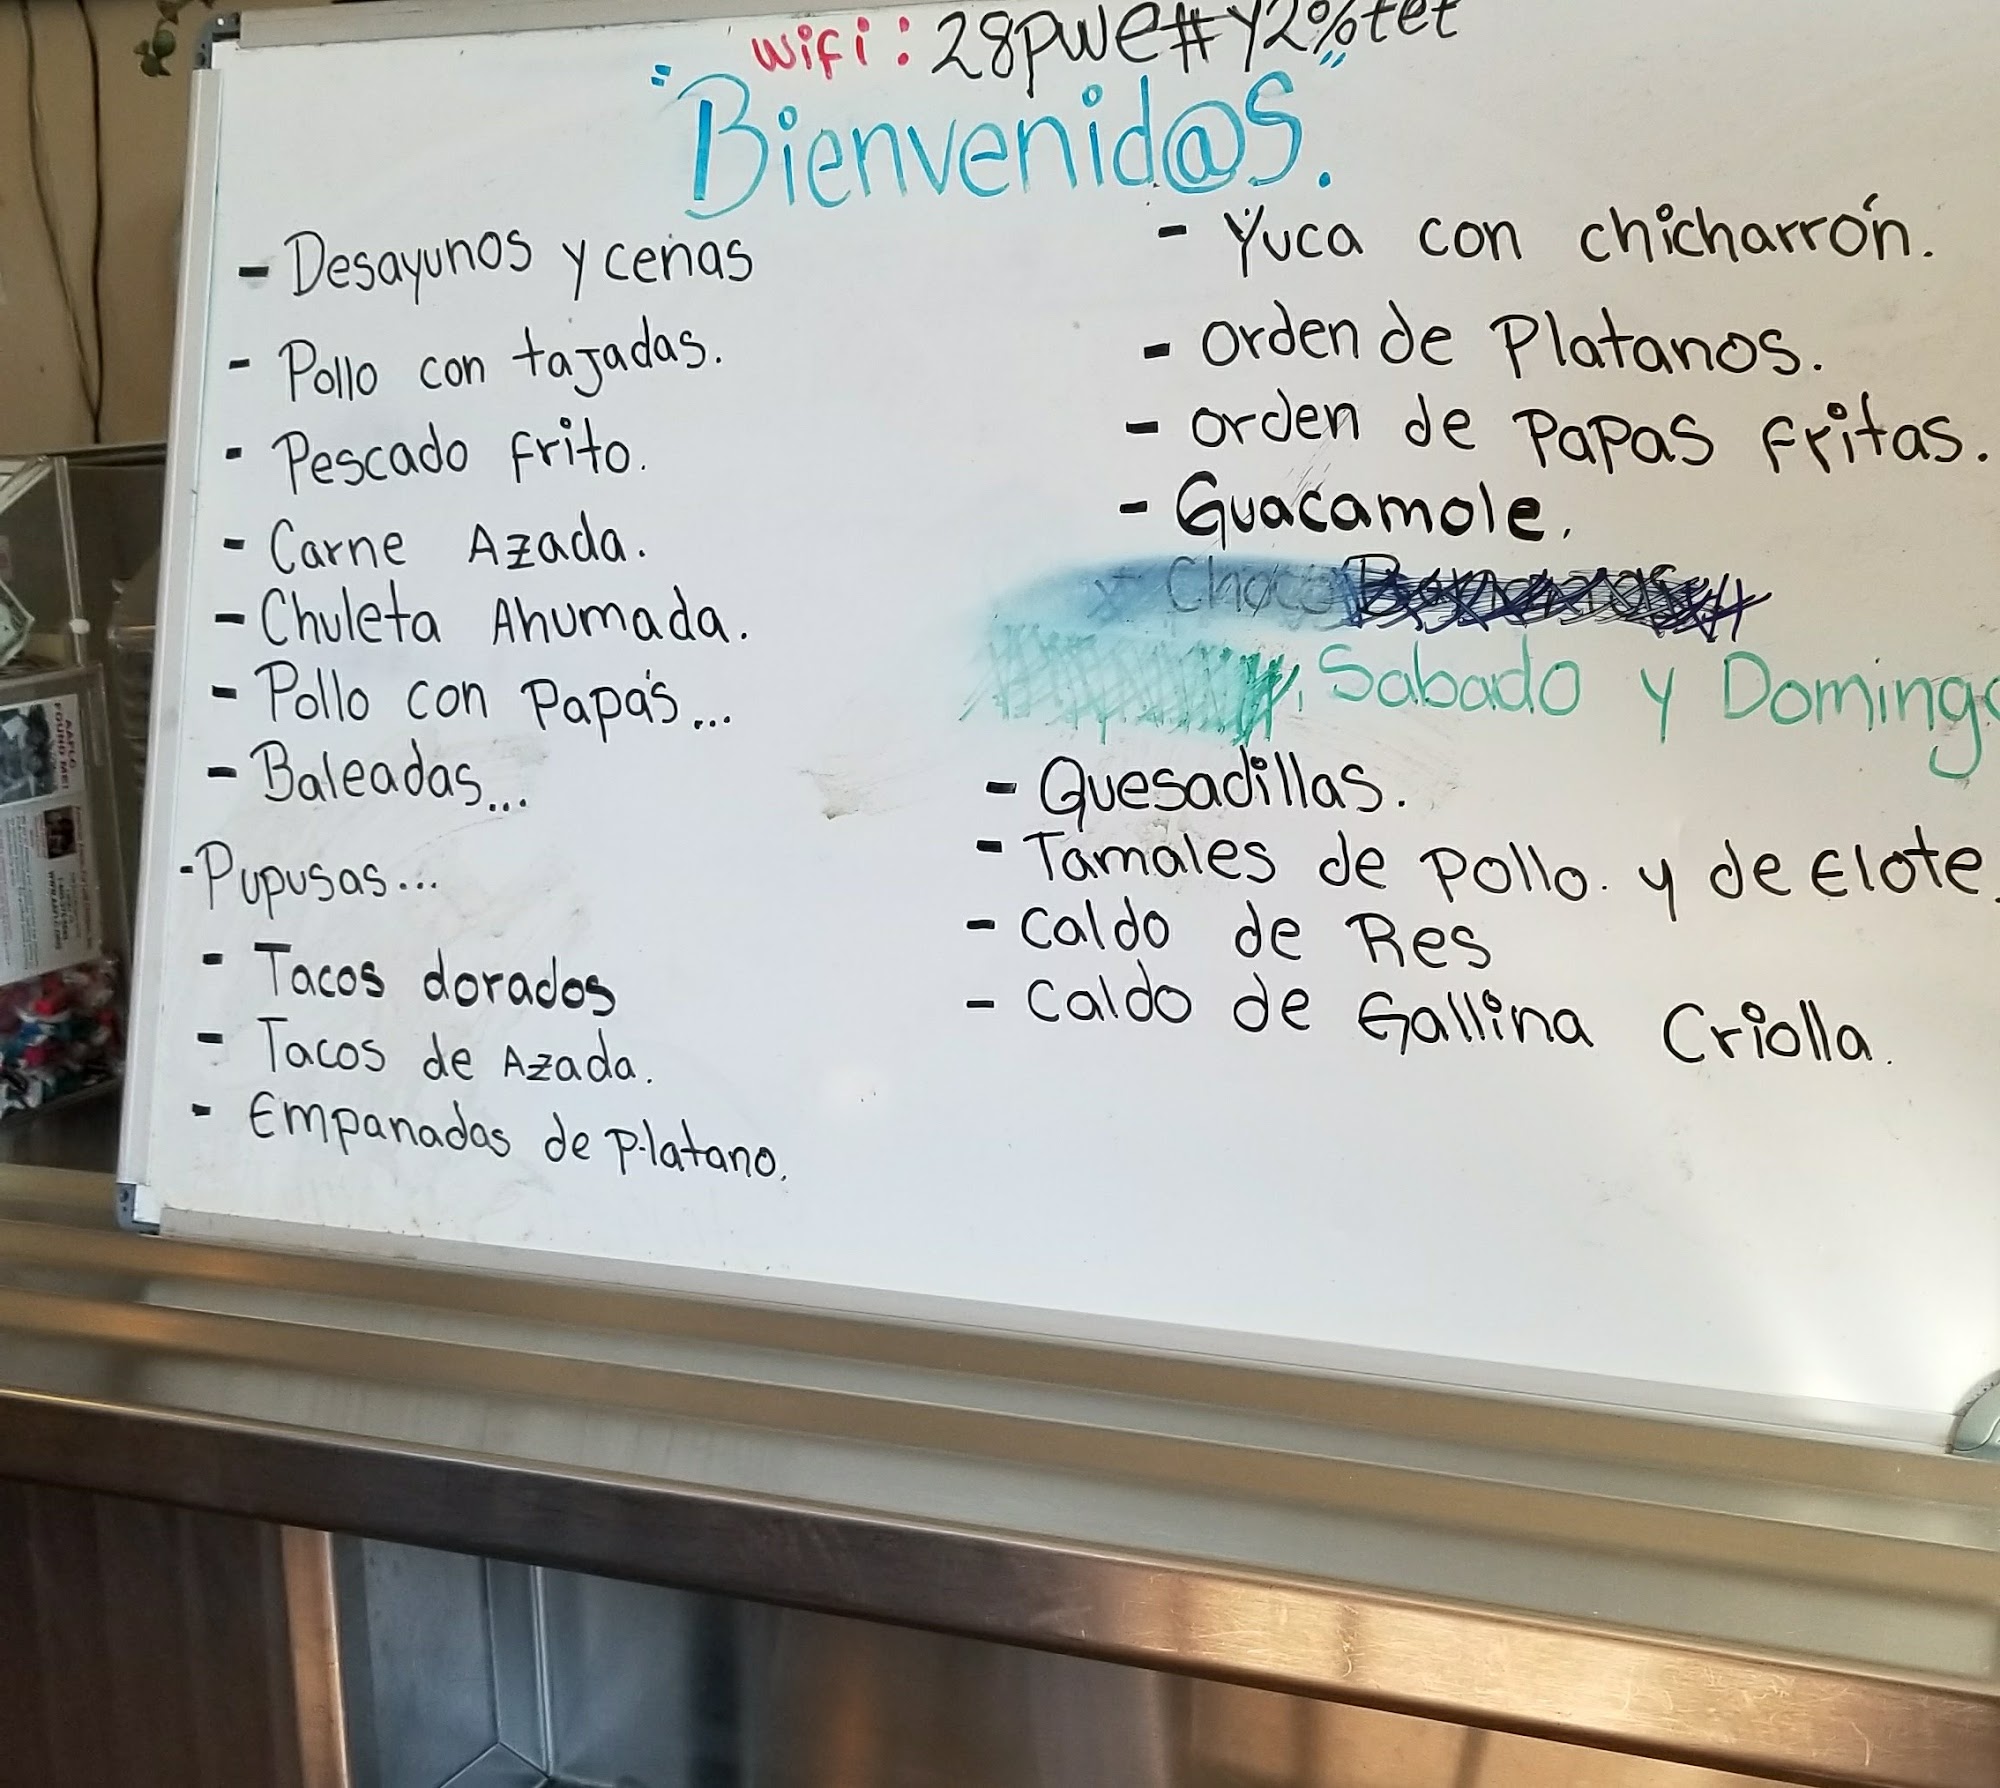 wifi: 28pwe#Y2%tet
"Bienvenid@s."
- Desayunos y cenas
- Pollo con tajadas.
- Pescado frito.
- Carne Azada.
- Chuleta Ahumada.
- Pollo con Papas...
- Baleadas...
- Pupusas...
- Tacos dorados
- Tacos de Azada.
- Empanadas de Platano.
- Yuca con chicharrón.
- orden de Platanos.
- orden de Papas fritas.
- Guacamole.
- Choco Bananas
Sabado y Domingo
- Quesadillas.
- Tamales de pollo. y de Elote.
- Caldo de Res
- Caldo de Gallina Criolla.